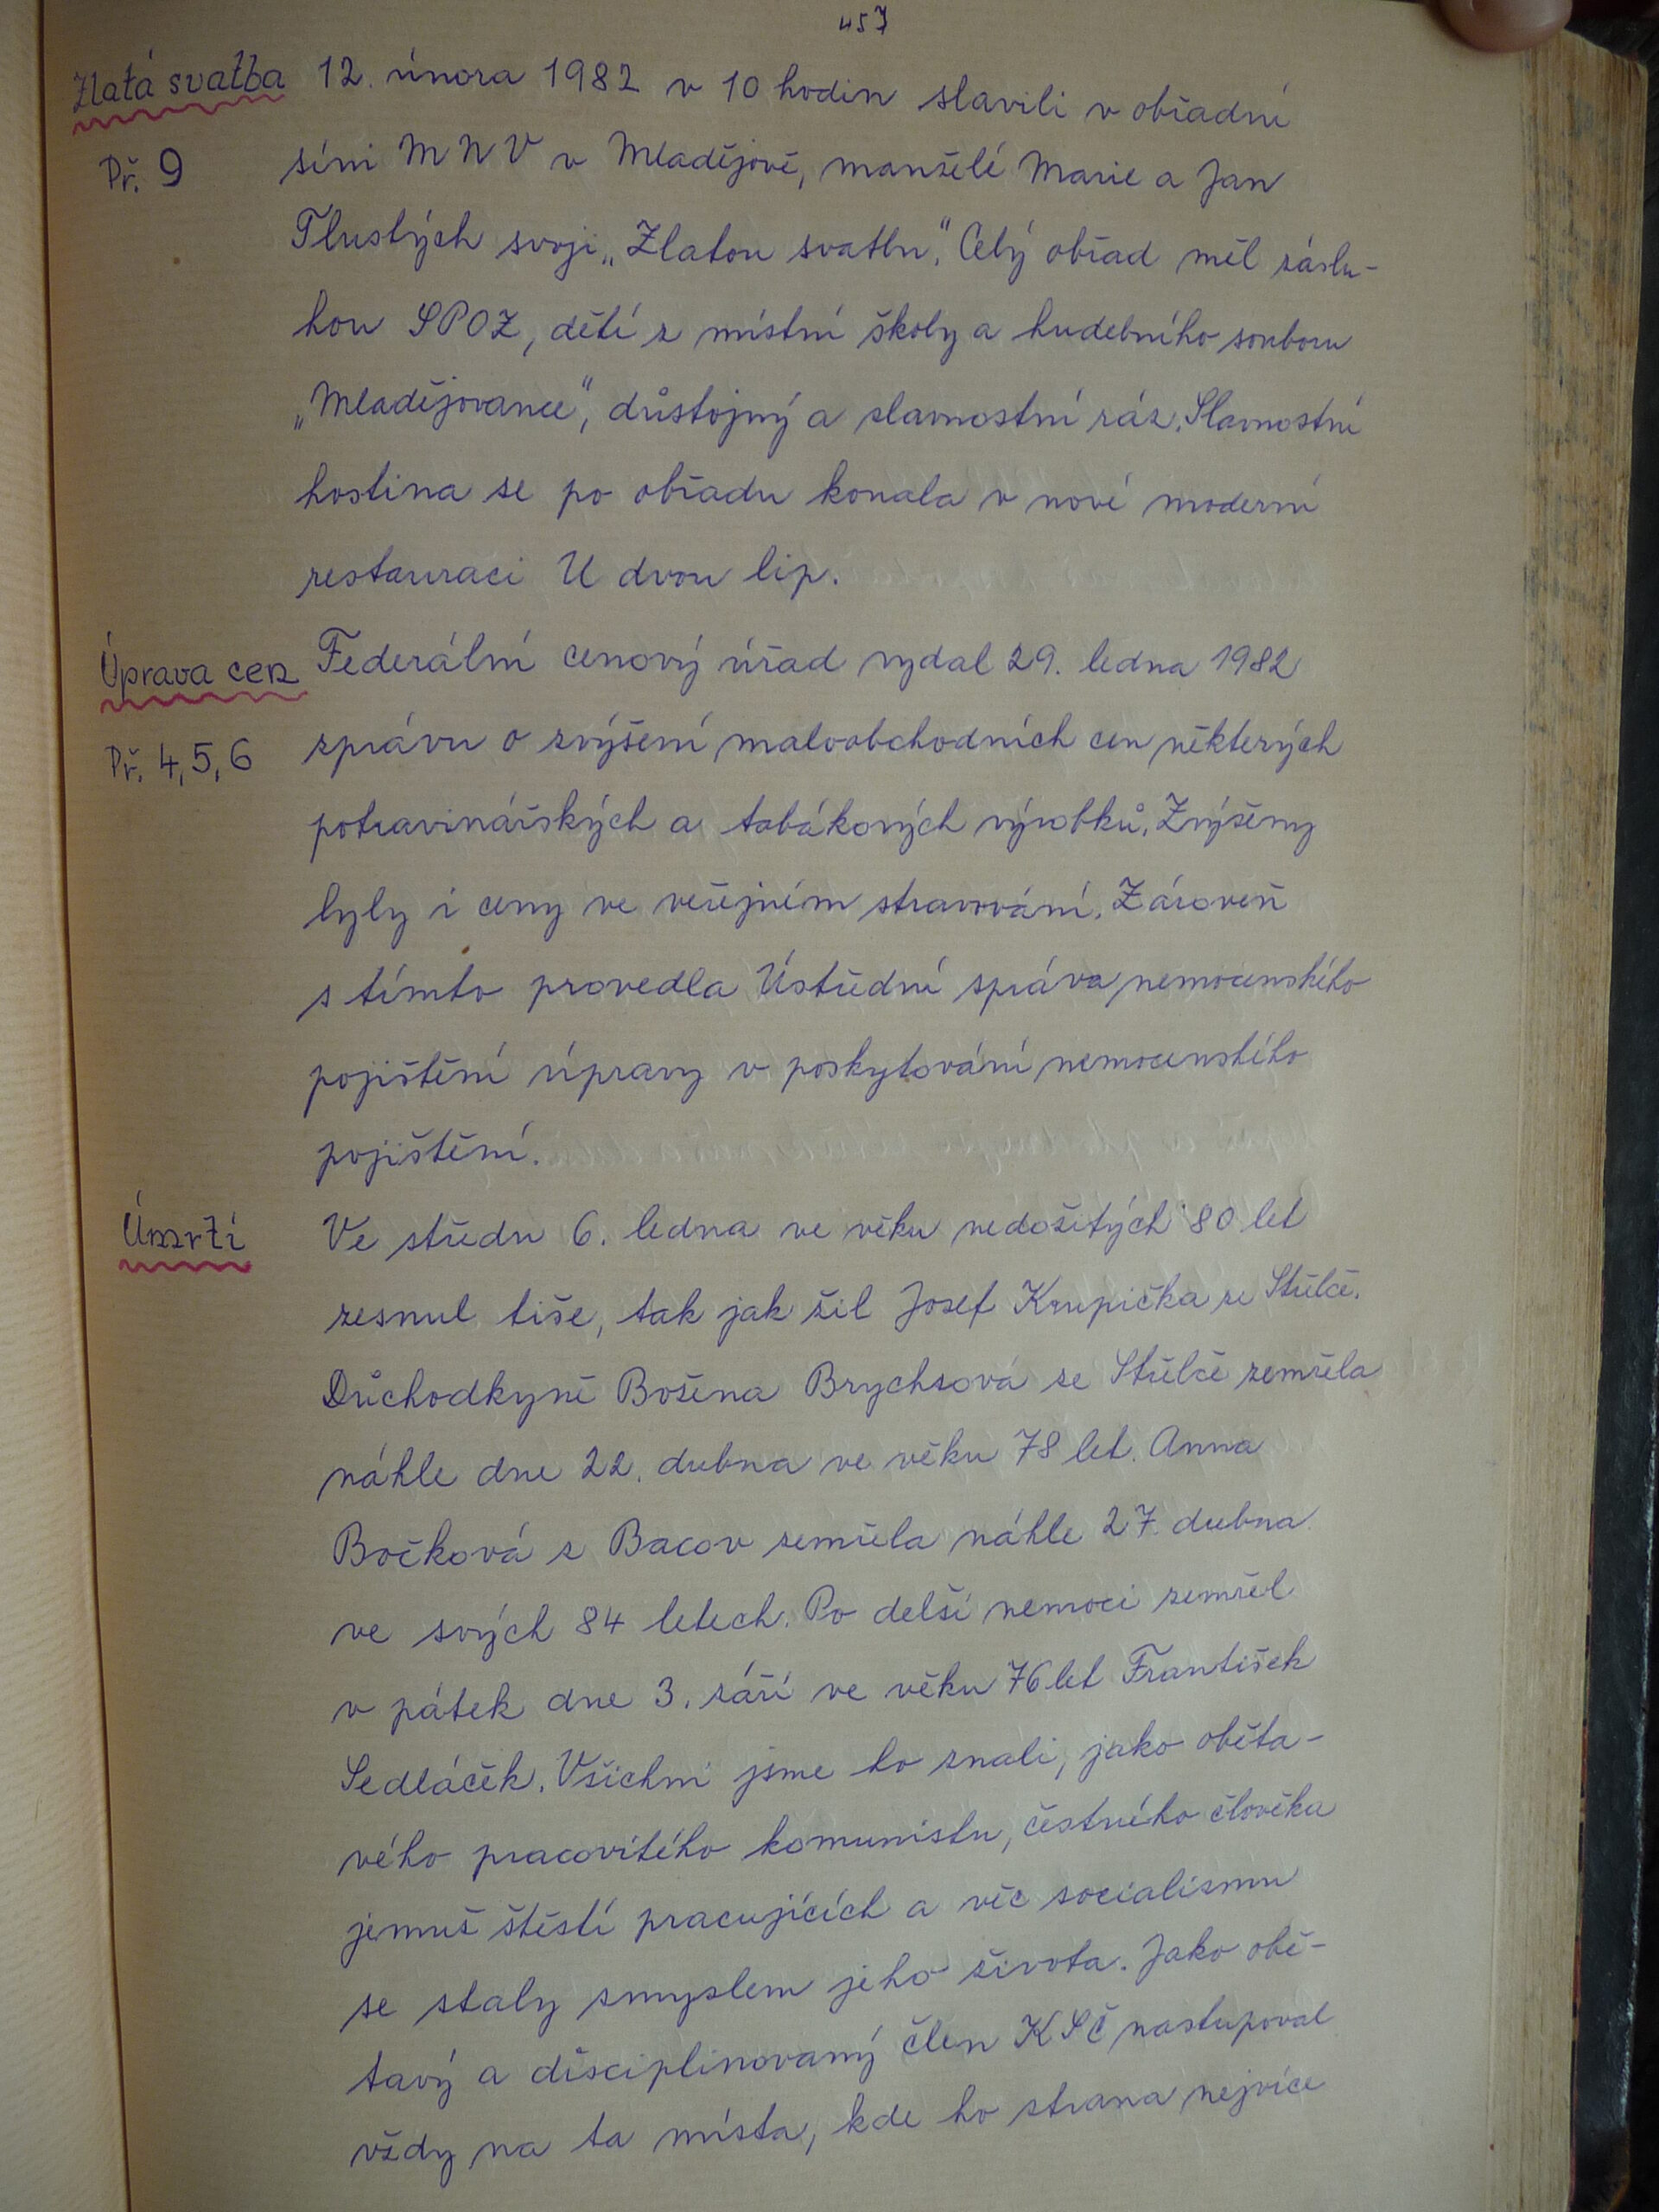 457
Zlatá svatba 12. února 1982 v 10 hodin slavili v obřadní
Př. 9 síni MNV v Mladějově, manželé Marie a Jan
Tlustých svoji „Zlatou svatbu“. Celý obřad měl záslu-
hou SPOZ, dětí z místní školy a hudebního souboru
„Mladějovance“, důstojný a slavnostní ráz. Slavnostní
hostina se po obřadu konala v nové moderní
restauraci U dvou lip.
Úprava cen Federální cenový úřad vydal 29. ledna 1982
Př. 4, 5, 6 zprávu o zvýšení maloobchodních cen některých
potravinářských a tabákových výrobků. Zvýšeny
byly i ceny ve veřejném stravování. Zároveň
s tímto provedla Ústřední správa nemocenského
pojištění úpravy v poskytování nemocenského
pojištění.
Úmrtí Ve středu 6. ledna ve věku nedožitých 80 let
zesnul tiše, tak jak žil Josef Krupička ze Střelče.
Důchodkyně Božena Brychsová ze Střelče zemřela
náhle dne 22. dubna ve věku 78 let. Anna
Bočková z Bacov zemřela náhle 27. dubna
ve svých 84 letech. Po delší nemoci zemřel
v pátek dne 3. září ve věku 76 let František
Sedláček. Všichni jsme ho znali, jako oběta-
vého pracovitého komunistu, čestného člověka
jemuž štěstí pracujících a věc socialismu
se staly smyslem jeho života. Jako obě-
tavý a disciplinovaný člen KSČ nastupoval
vždy na ta místa, kde ho strana nejvíce